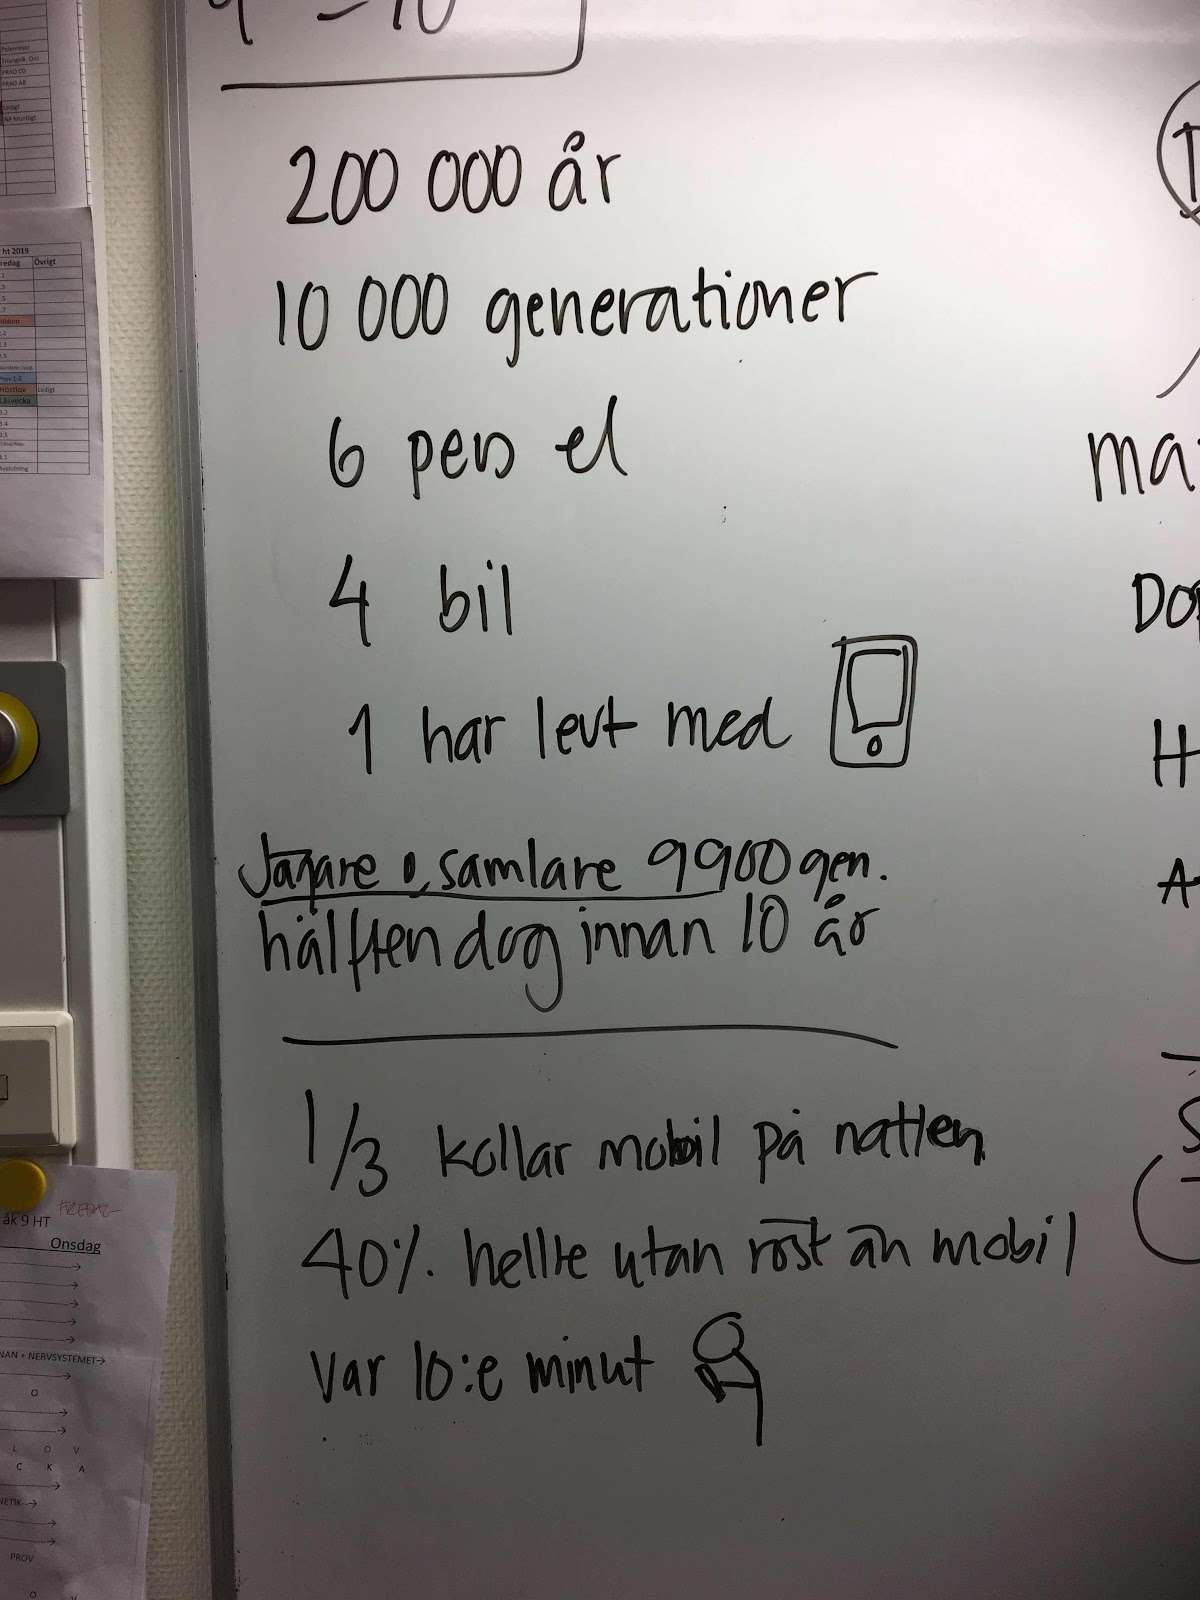 200 000 år
10 000 generationer
6 pers el
4 bil
1 har levt med
Jägare o, samlare 9900 gen.
hälften dog innan 10 år
1/3 kollar mobil på natten
40% hellre utan röst än mobil
var 10:e minut
ht 2019
Övrigt
Ledigt
PRAO CD
PRAO AB
NP Muntligt
Höstlov Ledigt
Läsvecka
Avslutning
åk 9 HT FREDAG
Onsdag
NAN + NERVSYSTEMET→
O
L O V
C K A
NETIK→
PROV
O V
ma
Do
H
A
S